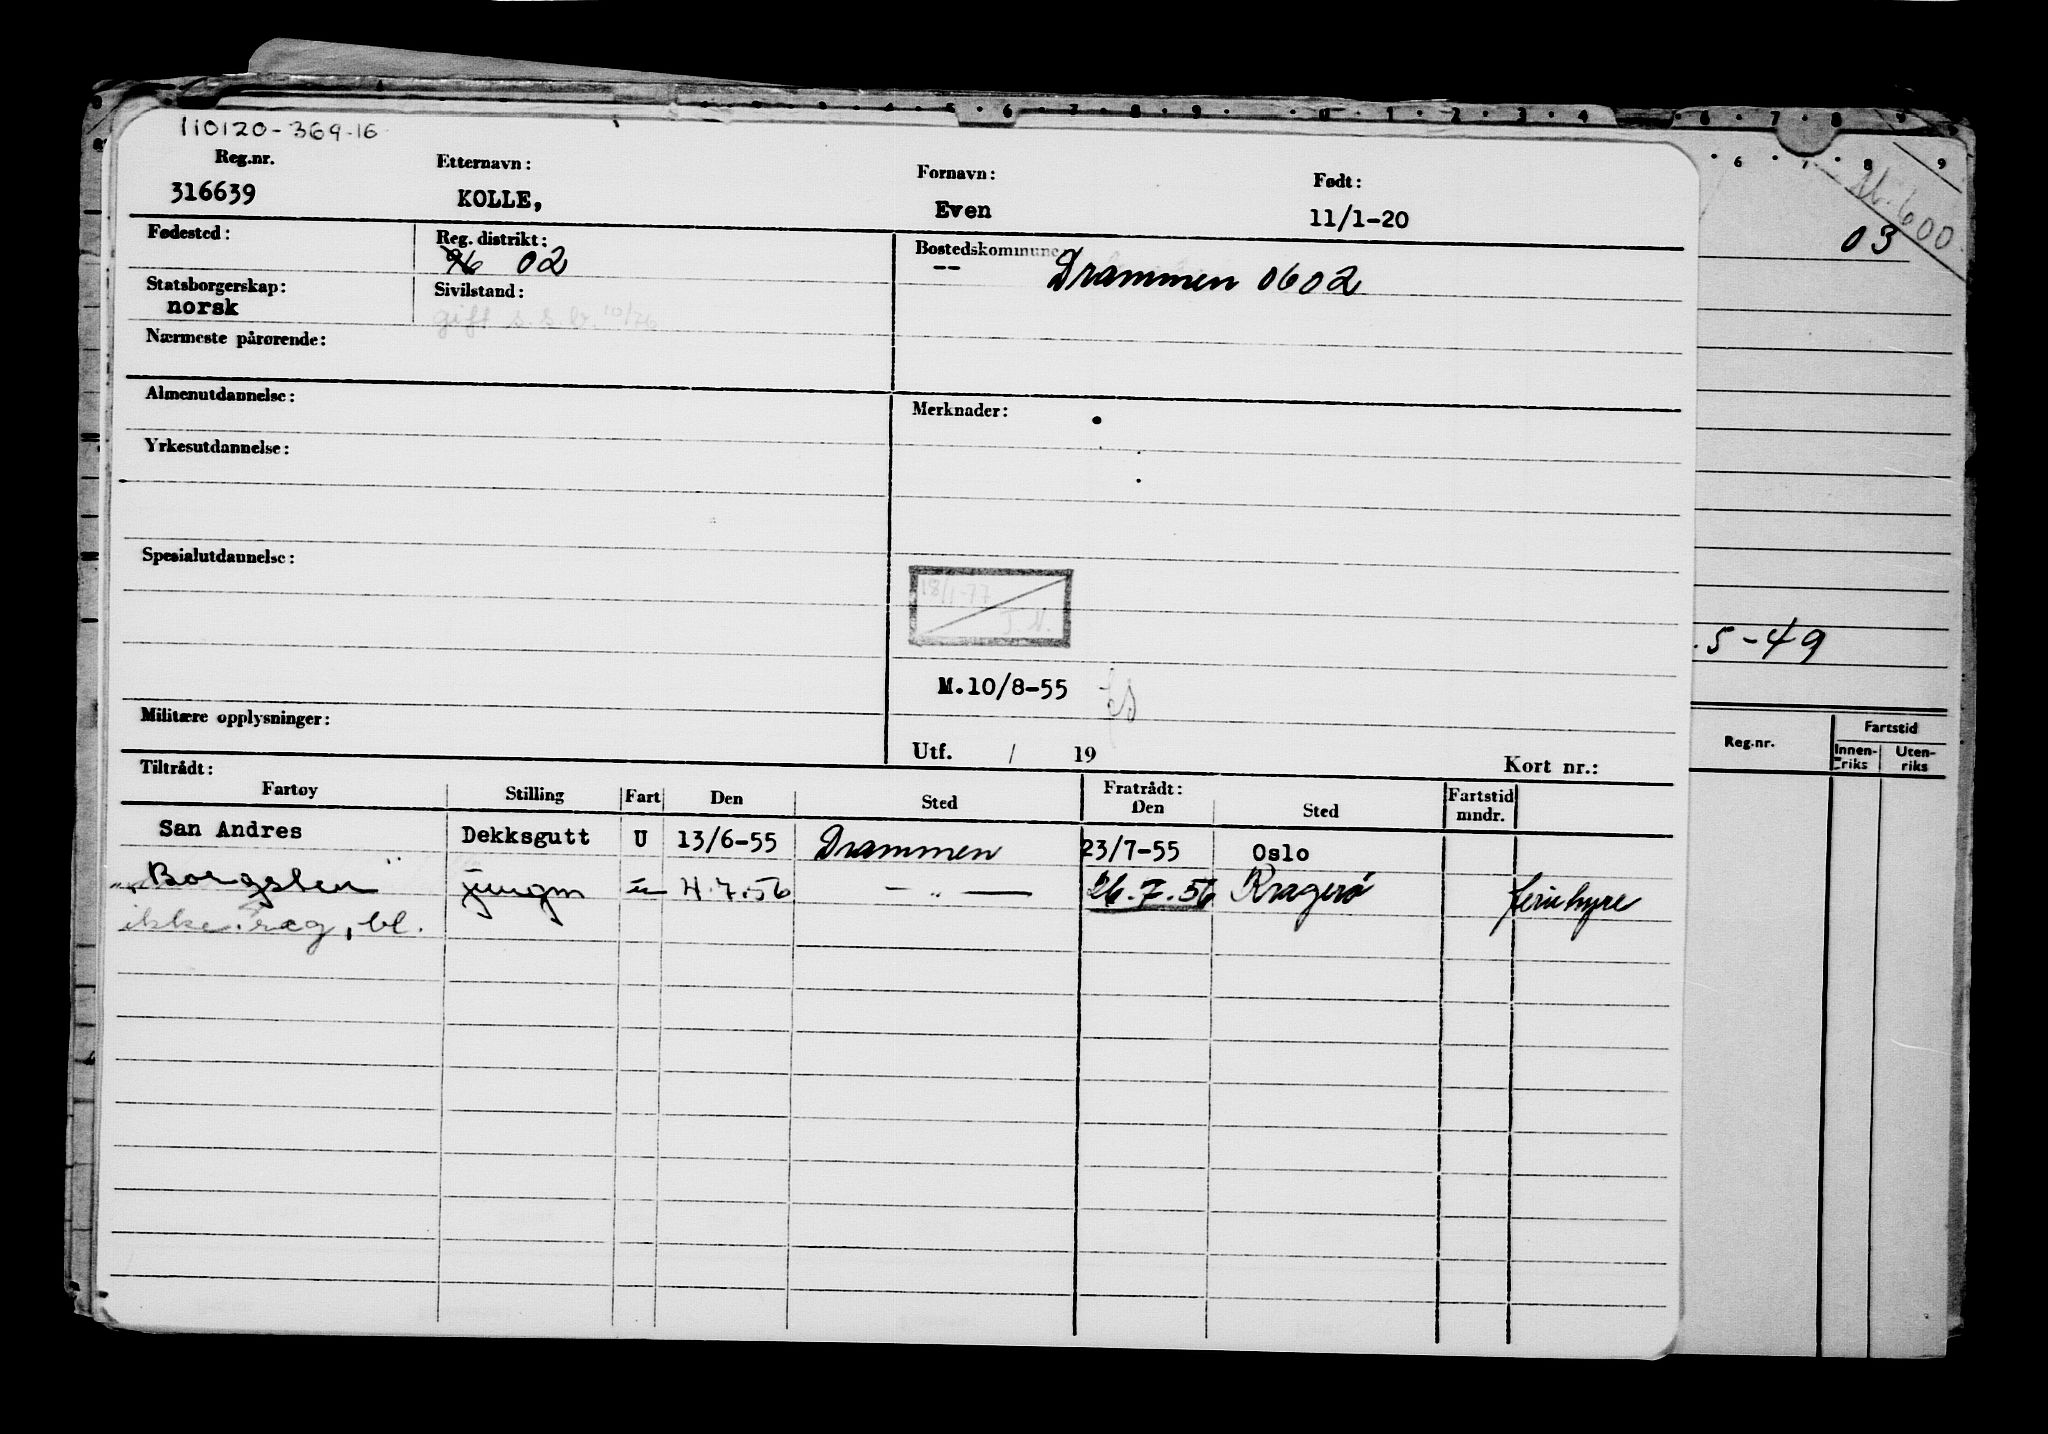 110120-369-16
Reg.nr. Etternavn: Fornavn: Født:
316639 KOLLE, Even 11/1-20
Fødested: Reg. distrikt: Bostedskommune:
02 -- Drammen 0602
Statsborgerskap: Sivilstand:
norsk gift s.s.br. 10/76
Nærmeste pårørende:
Almenutdannelse: Merknader:
Yrkesutdannelse:
Spesialutdannelse:
18/1-77
M.10/8-55
Militære opplysninger:
Utf. / 19 Kort nr.:
Tiltrådt: Fratrådt:
Fartøy Stilling Fart Den Sted Den Sted Fartstid mndr.
San Andres Dekksgutt U 13/6-55 Drammen 23/7-55 Oslo
"Borgsten" jungm u 4.7.56 — " — 26.7.56 Kragerø feriehyre
ikke reg, bl.
6 7 8 9
M. 600
03
.5-49
Reg.nr. Fartstid
Innen-riks Uten-riks